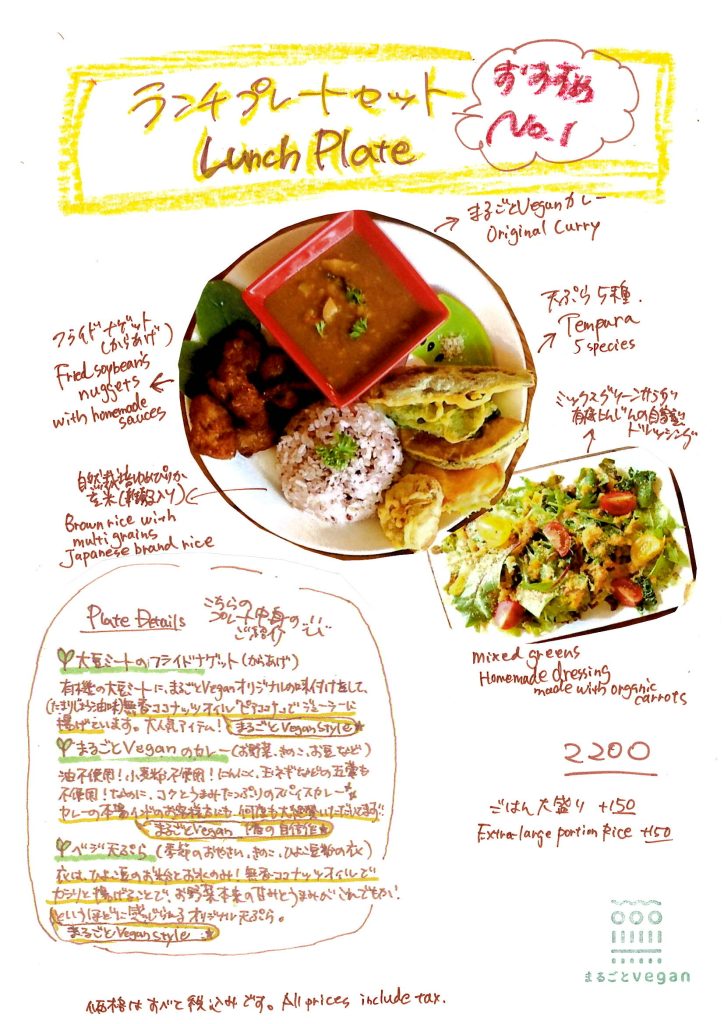 ランチプレートセット
Lunch Plate
おすすめ
No.1
まるごとVeganカレー
Original Curry
天ぷら5種.
Tempura
5 species
フライドナゲット
(からあげ)
Fried soybean's
nuggets
with homemade
sauces
ミックスグリーンサラダ
有機にんじんの自家製
ドレッシング
自然栽培ゆめぴりか
玄米(雑穀入り)
Brown rice with
multigrains
Japanese brand rice
Mixed greens
Homemade dressing
made with organic
carrots
Plate Details
こちらの
プレート中身の
ご紹介
大豆ミートのフライドナゲット(からあげ)
有機の大豆ミートに、まるごとVeganオリジナルの味付けをして、
(たまりじょうゆ味)無香ココナッツオイルでジューシーに
揚げています。大人気アイテム! まるごとVegan Style
まるごとVeganのカレー(お野菜、きのこ、お豆など)
油不使用!小麦粉不使用!にんにく、玉ネギなどの五葷も
不使用!なのに、コクとうまみたっぷりのスパイスカレー
カレーの本場インドのお客様方にも何度も大絶賛いただいてます!!
まるごとVegan 1番の自信作
ベジ天ぷら(季節のおやさい、きのこ、ひよこ豆粉の衣)
衣は、ひよこ豆のお粉とお水のみ!無香ココナッツオイルで
カラリと揚げることで、お野菜本来の甘みとうまみがこれでもか!
というほどに感じられるオリジナル天ぷら。
まるごとVegan Style
2200
ごはん大盛り +150
Extra-large portion Rice +150
まるごとvegan
価格はすべて税込みです。All prices include tax.